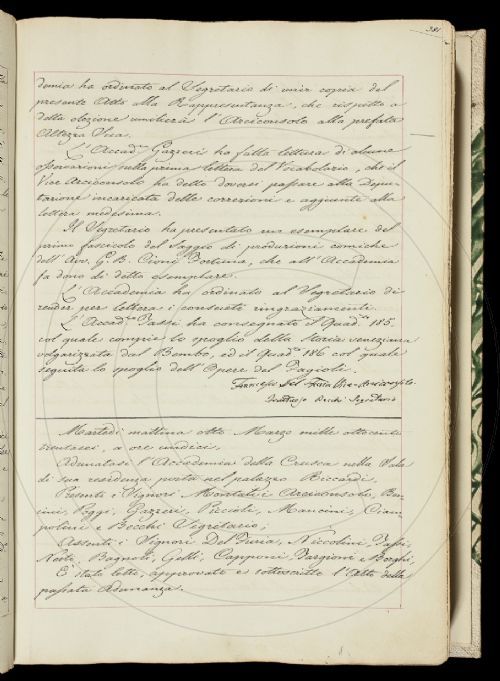 381
demia ha ordinato al Segretario di unir copia del
presente Atto alla Rappresentanza, che rispetto a
detta elezione umilierà l'Arciconsolo alla prefata
Altezza Sua.
L'Accad.co Gazzeri ha fatta lettura di alcune
osservazioni sulla prima lettera del Vocabolario, che il
Vice Arciconsolo ha detto doversi passare alla Depu-
tazione incaricata delle correzioni e aggiunte alla
lettera medesima.
Il Segretario ha presentato un esemplare del
primo fascicolo del Saggio di produzioni comiche
dell'Avv. G. B. Cioni Fortuna, che all'Accademia
fa dono di detto esemplare.
L'Accademia ha ordinato al Segretario di
render per lettera i consueti ringraziamenti.
L'Accad.co Zassi ha consegnato il Quad.no 185
col quale compie lo spoglio della Storia veneziana
volgarizzata dal Bembo, ed il Quad.no 186 col quale
seguita lo spoglio dell'Opere del Fagioli.
Francesco Del Furia Vice-Arciconsolo
Fruttuoso Becchi Segretario
Martedì mattina otto Marzo mille ottocento
trentasei, a ore undici.
Adunatasi l'Accademia della Crusca nella Sala
di sua residenza posta nel palazzo Riccardi,
Presenti i Signori Montalvi Arciconsolo, Ben-
cini, Poggi, Gazzeri, Puccioli, Mancini, Ciam-
polini e Becchi Segretario;
Assenti i Signori Del Furia, Niccolini, Zassi,
Nesti, Bagnoli, Gelli, Capponi, Targioni e Borghi,
È stato letto, approvato e sottoscritto l'Atto della
passata Adunanza.